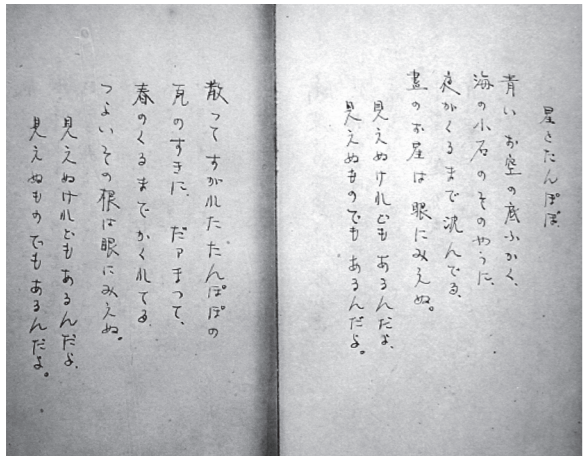 星とたんぽぽ
青いお空の底ふかく、
海の小石のそのやうに、
夜がくるまで沈んでる、
晝のお星は眼にみえぬ。
見えぬけれどもあるんだよ、
見えぬものでもあるんだよ。
散つてすがれたたんぽぽの
瓦のすきに、だァまつて、
春のくるまでかくれてる、
つよいその根は眼にみえぬ。
見えぬけれどもあるんだよ、
見えぬものでもあるんだよ。